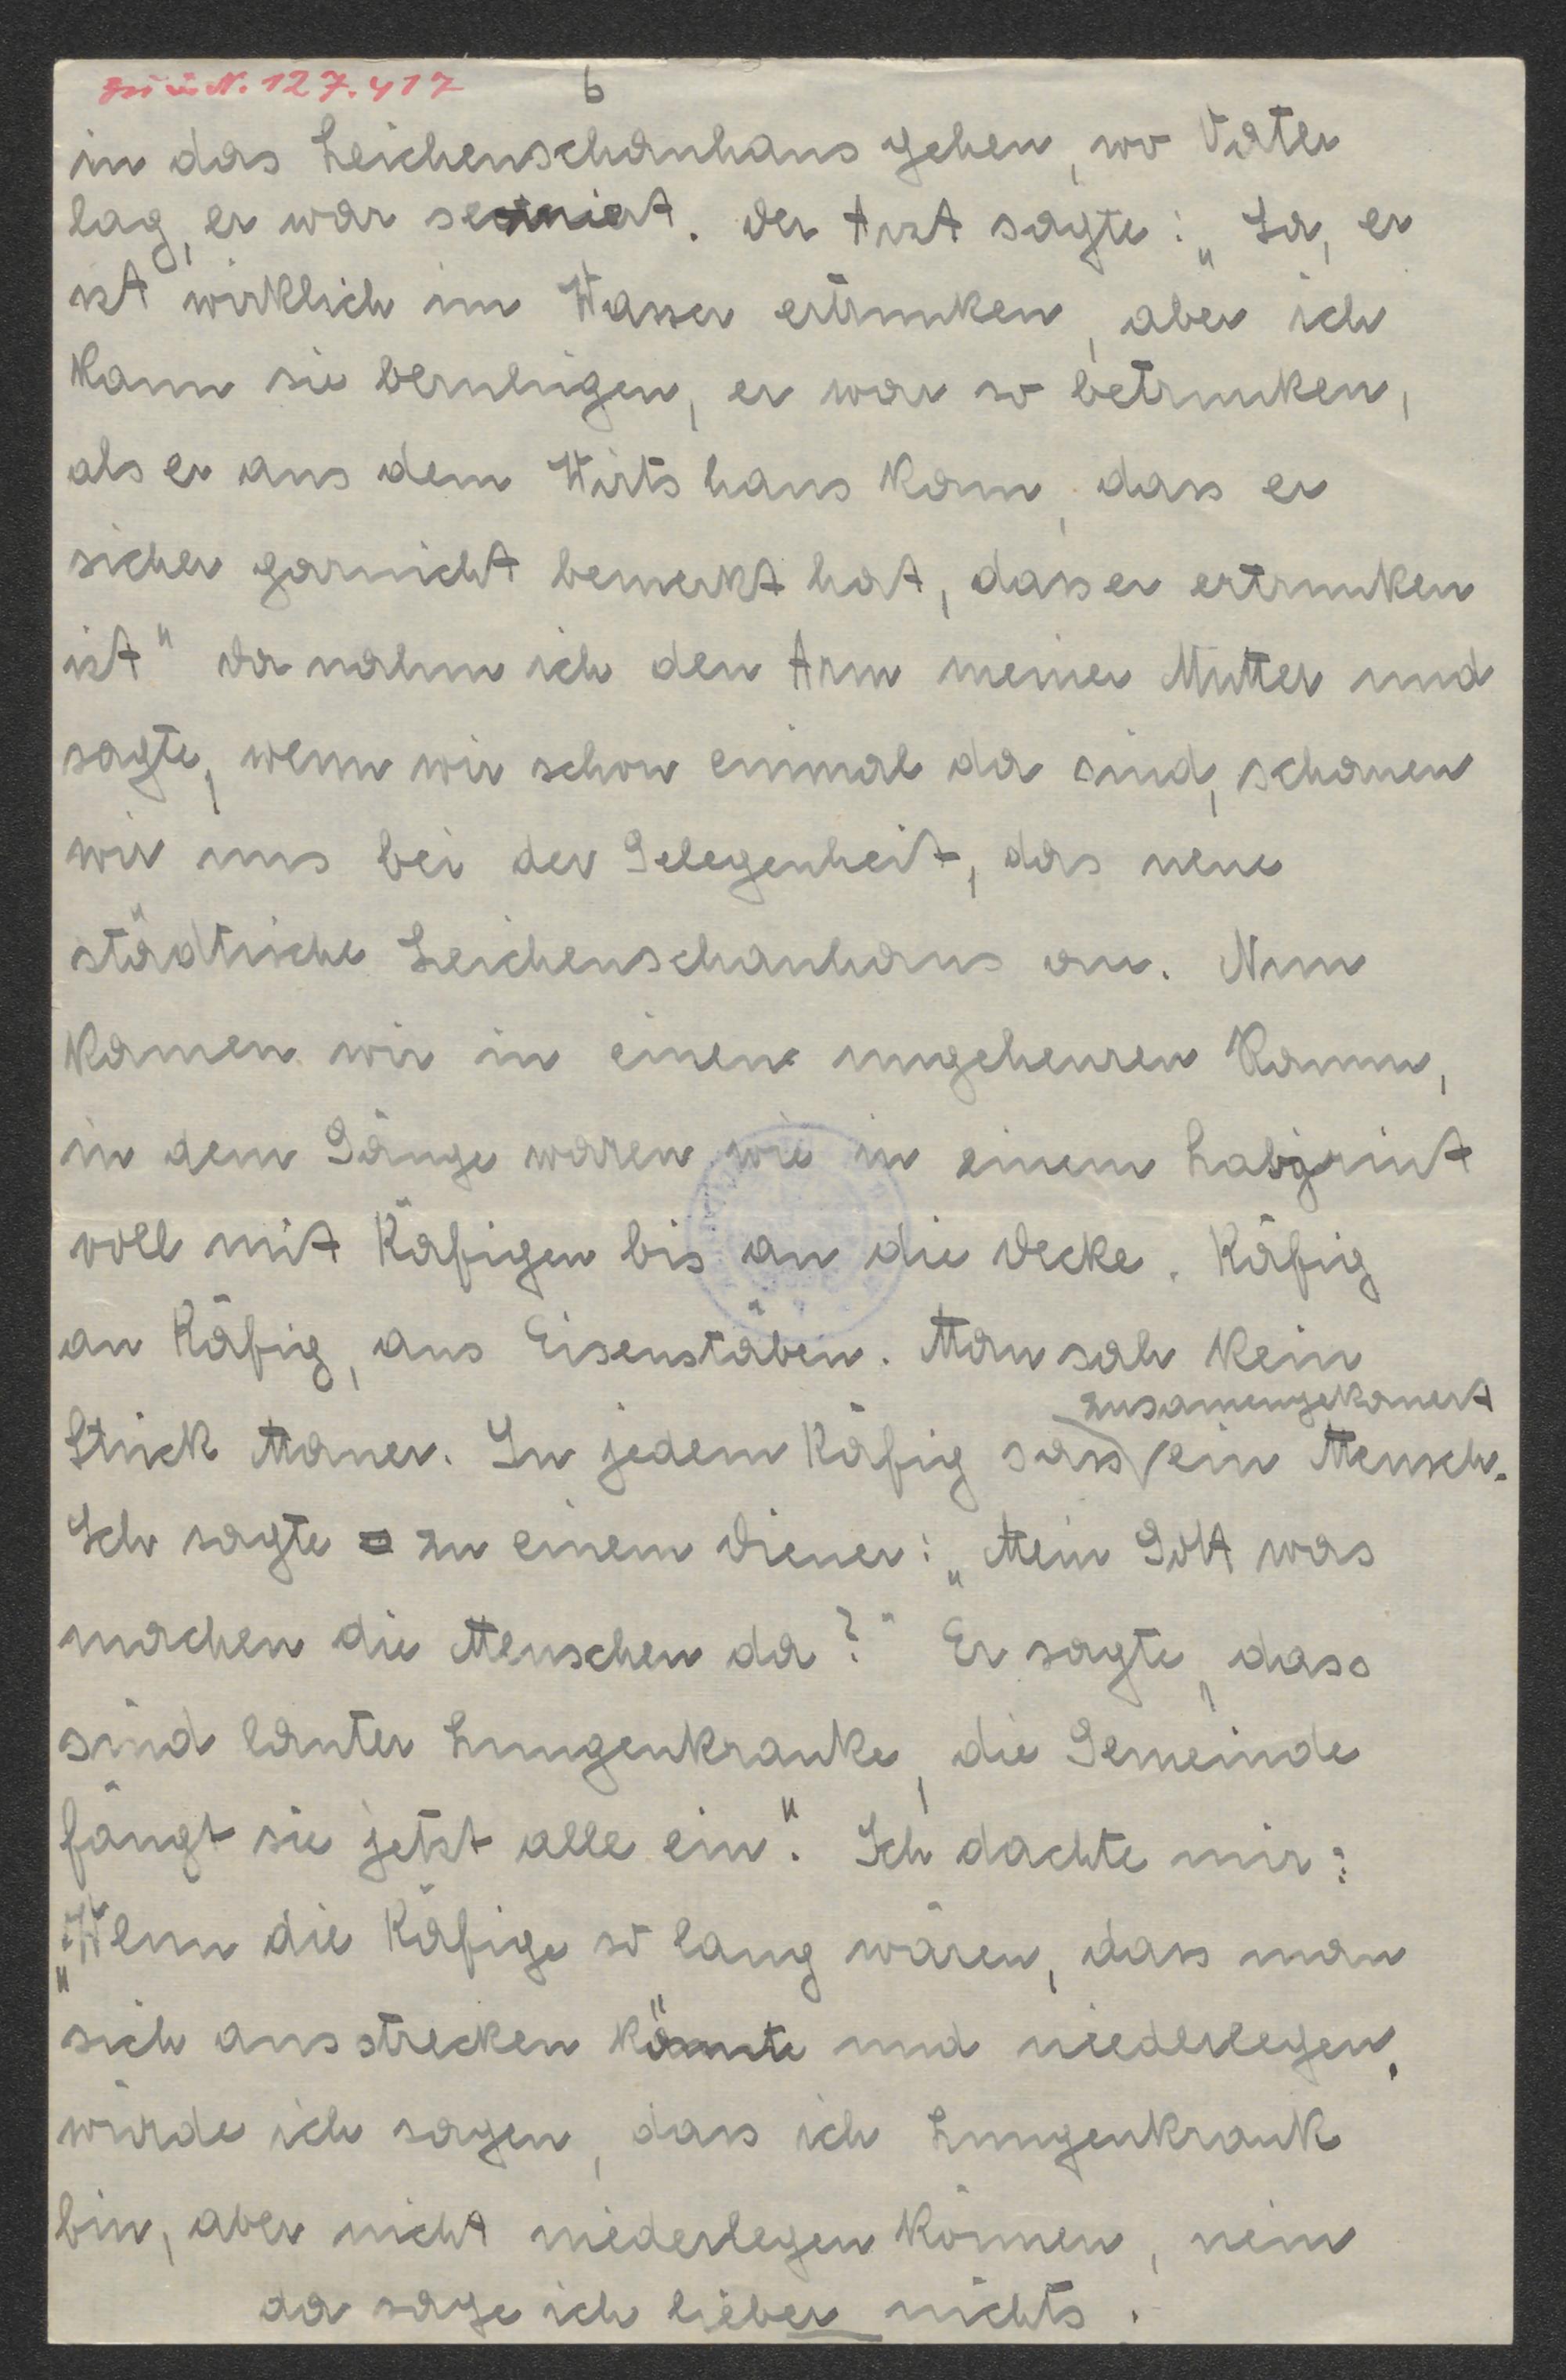 N. 127.417
6
in das Leichenschauhaus gehen, wo Vater
lag, er war seziert. Der Arzt sagte: „Ja, er
ist wirklich im Wasser ertrunken, aber ich
kann sie beruhigen, er war so betrunken,
als er aus dem Wirtshaus kam, dass er
sicher garnicht bemerkt hat, dass er ertrunken
ist" Da nahm ich den Arm meiner Mutter und
sagte, wenn wir schon einmal da sind, schauen
wir uns bei der Gelegenheit, das neue
städtische Leichenschauhaus an. Nun
kamen wir in einen ungeheuren Raum,
in dem Gänge waren wie in einem Labyrint
voll mit Käfigen bis an die Decke. Käfig
an Käfig, aus Eisenstäben. Man sah kein
zusamengekauert
Stück Mauer. In jedem Käfig sass ein Mensch.
Ich sagte zu einem Diener: „Mein Gott was
machen die Menschen da?" Er sagte, dass
sind lauter Lungenkranke, die Gemeinde
fängt sie jetzt alle ein". Ich dachte mir:
„Wenn die Käfige so lang wären, dass man
sich ausstrecken könnte und niederlegen,
würde ich sagen, dass ich Lungenkrank
bin, aber nicht niederlegen können, nein
da sage ich lieber nichts.